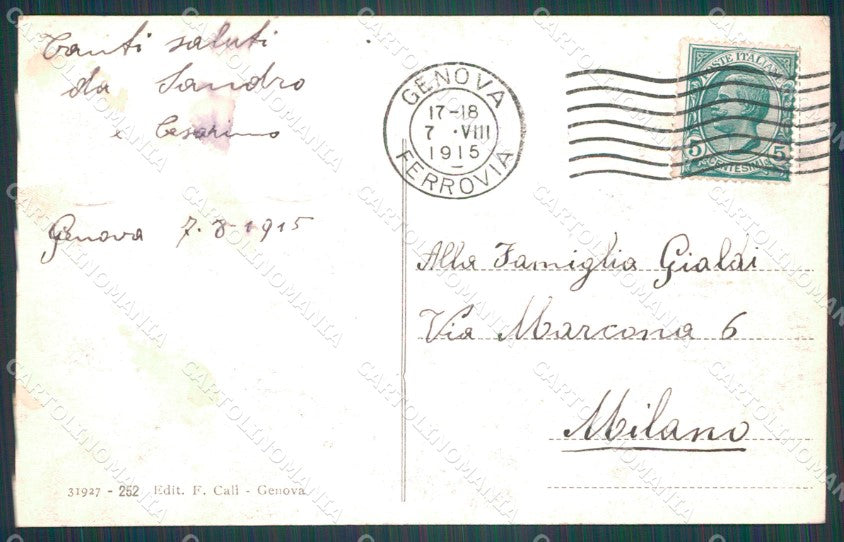 Tanti saluti
da Sandro
e Cesarino
Genova 7.8.1915
GENOVA
17-18
7 · VIII
1915
FERROVIA
POSTE ITALIANE
5 5
CENTESIMI
Alla Famiglia Gialdi
Via Marcona 6
Milano
31927 - 252 Edit. F. Cali - Genova
CARTOLINOMANIA